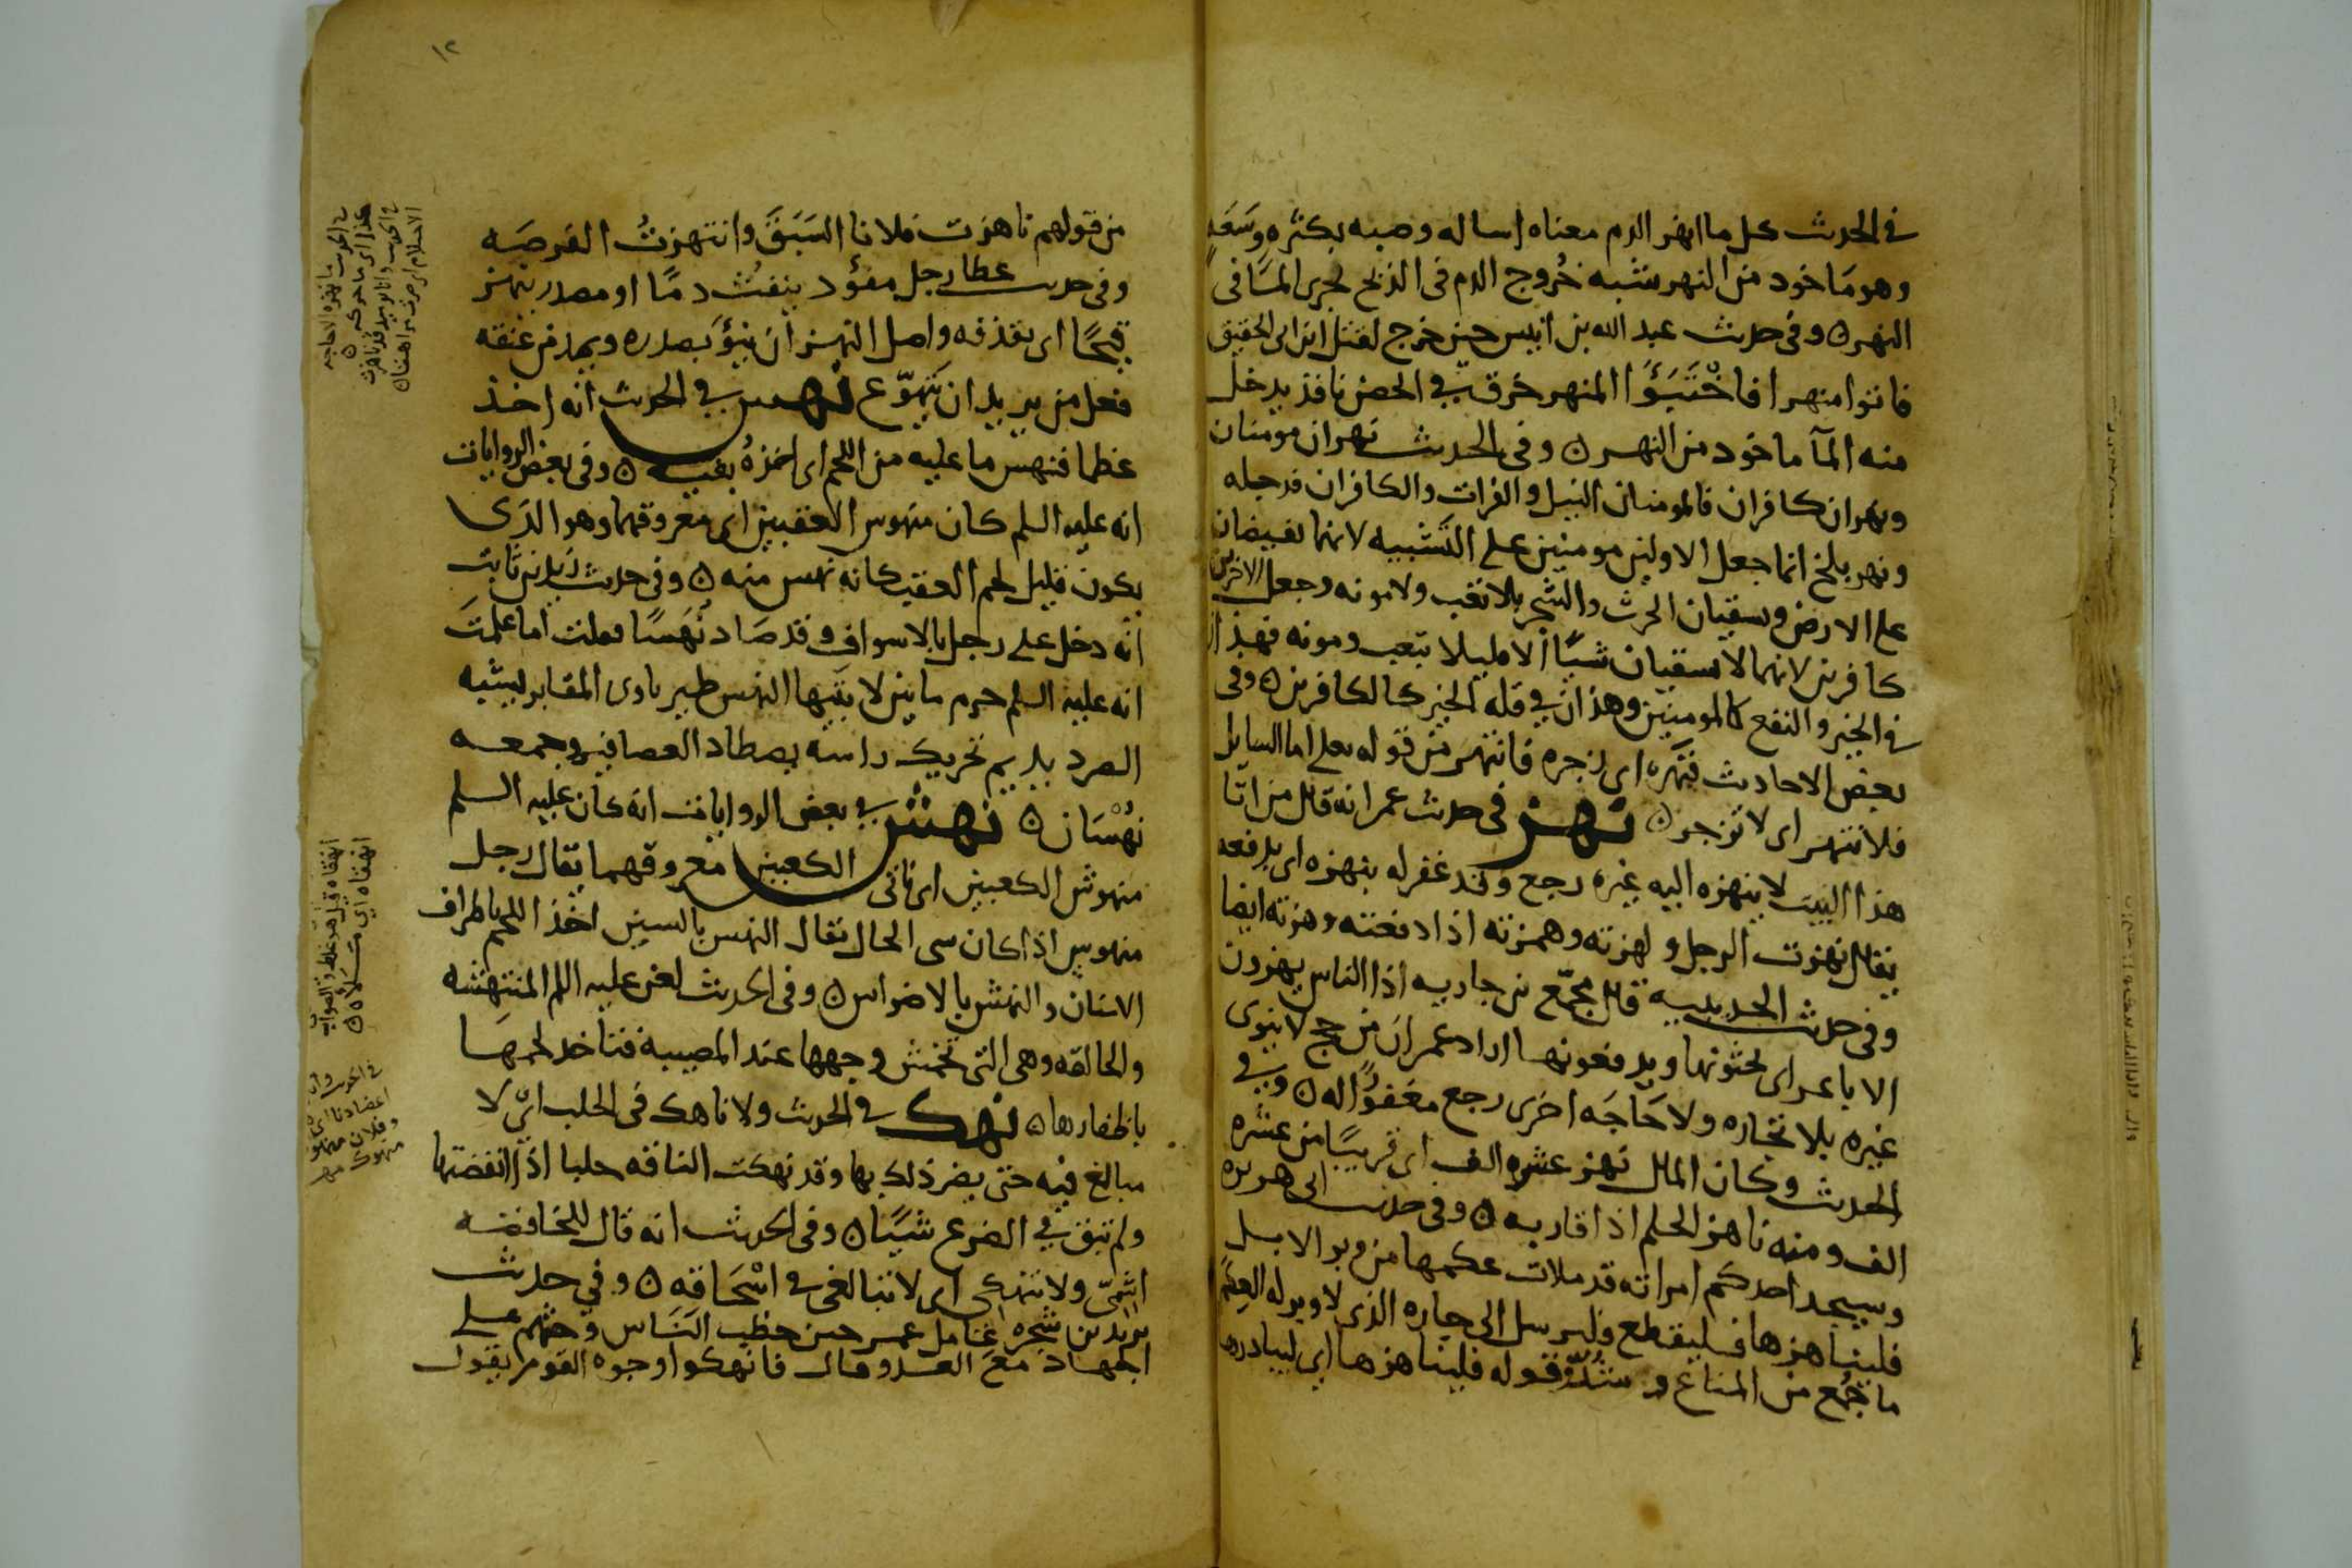 في الحديث كل ما انهر الدم معناه اساله وصبه بكثره وسعه
وهو مَاخود من النهر شبه خُروج الدم في الذبح لجرى المآ في
النهر ٥ وفي حديث عبد الله بن انيس حين خرج لقتل ابن ابي الحقيق
فاتوا منهرا فاخْتَبَؤَا المنهر خرق في الحصن نافذ يدخل
منه المآ ماخود من النهر ٥ وفي الحديث نهران مومنان
ونهران كافران فالمومنان النيل والفرات والكافران فدجله
ونهر بلخ انما جعل الاولين مومنين على التشبيه لانهما يفيضان
على الارض ويسقيان الحرث والشجر بلا تعب ولا مونه وجعل الاخرين
كافرين لانهما لا يسقيان شيًا الا قليلا بتعب ومونه فهذان
في الخير والنفع كالمومنين وهذان في قله الخير كالكافرين ٥ وفي
بعض الاحاديث فنهره اى زجره فانتهر من قوله تعلى اما السايل
فلا تنهر اى لا تزجر ٥ نهز في حديث عمر انه قال من اتا
هذا البيت لا ينهزه اليه غيره رجع وقد غفر له ينهزه اى يدفعه
يقال نهزت الرجل و لهزته وهمزته اذا دفعته وهزته ايضا
وفي حديث الحديبيه قال مجمّع بن جاريه اذا الناس يهزون
الاباعر اى يحثونها ويدفعونها اراد عمر ان من حج لا ينوى
غيره بلا تجاره ولا حَاجَه اخرى رجع مغفوًرا له ٥ وفي
الحديث وكان المال نهز عشره الف اى قريبًا من عشره
الف ومنه ناهز الحلم اذا قاربه ٥ وفي حديث ابي هريره
وسيجد احدكم امراته قد ملات عكمها من وبر الابل
فليناهزها فليقطع وليرسل الى جاره الذى لا وبر له العِكم
ما جُمع من المتاع وشُدّ وقوله فليناهزها اى ليبادرها
١٢
من قولهم ناهزت فلانا السَبَقَ وانتهزتُ الفرصَه
وفي حديث عطا رجل مفؤد ينفث دمًا او مصدر ينهز
قيحًا اى يقذفه واصل النهز ان ينؤَ بصدره ويمد من عنقه
فعل من يريد ان يتهوّع نهس في الحديث انه اخذ
عظما فنهس ما عليه من اللحم اى اخذهُ بفيه ٥ وفي بعض الروايات
انه عليه السلم كان منهوس العقبين اى معروقهما وهو الذى
يكون قليل لحم العقب كانه نهس منه ٥ وفي حديث زيد بن ثابت
انه دخل على رجل بالاسواف وقد صَاد نُهَسًا فقلت اما علمتَ
انه عليه السلم حرم ما بين لابتيها النهس طير ياوى المقابر يشبه
الصرد يديم تحريك راسه يصطاد العصافير وجمعه
نُهْسَان ٥ نهش في بعض الروايات انه كان عليه السلم
منهوش الكعبين اى ناتى الكعبين معروقهما يقال رجل
منهوس اذا كان سى الحال يقال النهس بالسين اخذ اللحم باطراف
الاسنان والنهش بالاضراس ٥ وفي الحديث لعن عليه اللم المنتهشه
والحالقه وهى التى تخمش وجهها عند المصيبه فتاخد لحمهَا
باظفارها ٥ نهك في الحديث ولا ناهك في الحلب اى لا
مبالغ فيه حتى يضر ذلك بها وقد نهكت الناقه حلبا اذا انفضتها
ولم تبق في الضرع شيًا ٥ وفي الحديث انه قال للخافضه
اشِمّى ولا تنهكى اى لا تبالغى في اسْحَاقه ٥ وفي حديث
يزيد بن شجره عامل عمر حين خطب النَاس وحثهم على
الجهاد مع العدو فقال فانهكوا وجوه القوم يقول